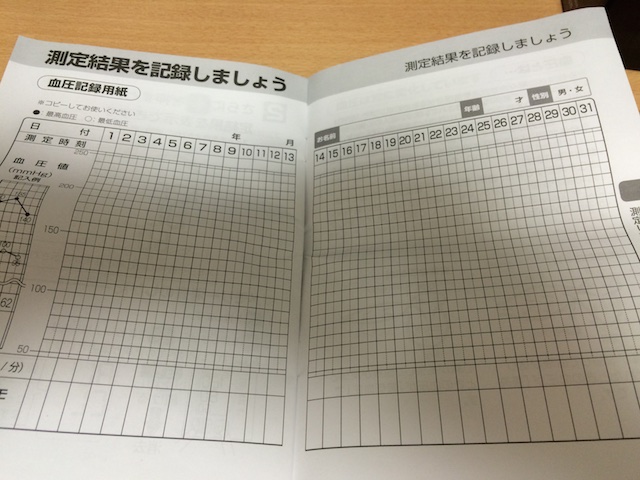 測定結果を記録しましょう
血圧記録用紙
※コピーしてお使いください
● 最高血圧 ○ 最低血圧
年 月
日 付 1 2 3 4 5 6 7 8 9 10 11 12 13
測定時刻
血圧値
(mmHg)
記入例
250
200
150
100
50
62
/分)
測定結果を記録しましょう
お名前 年齢 才 性別 男・女
14 15 16 17 18 19 20 21 22 23 24 25 26 27 28 29 30 31